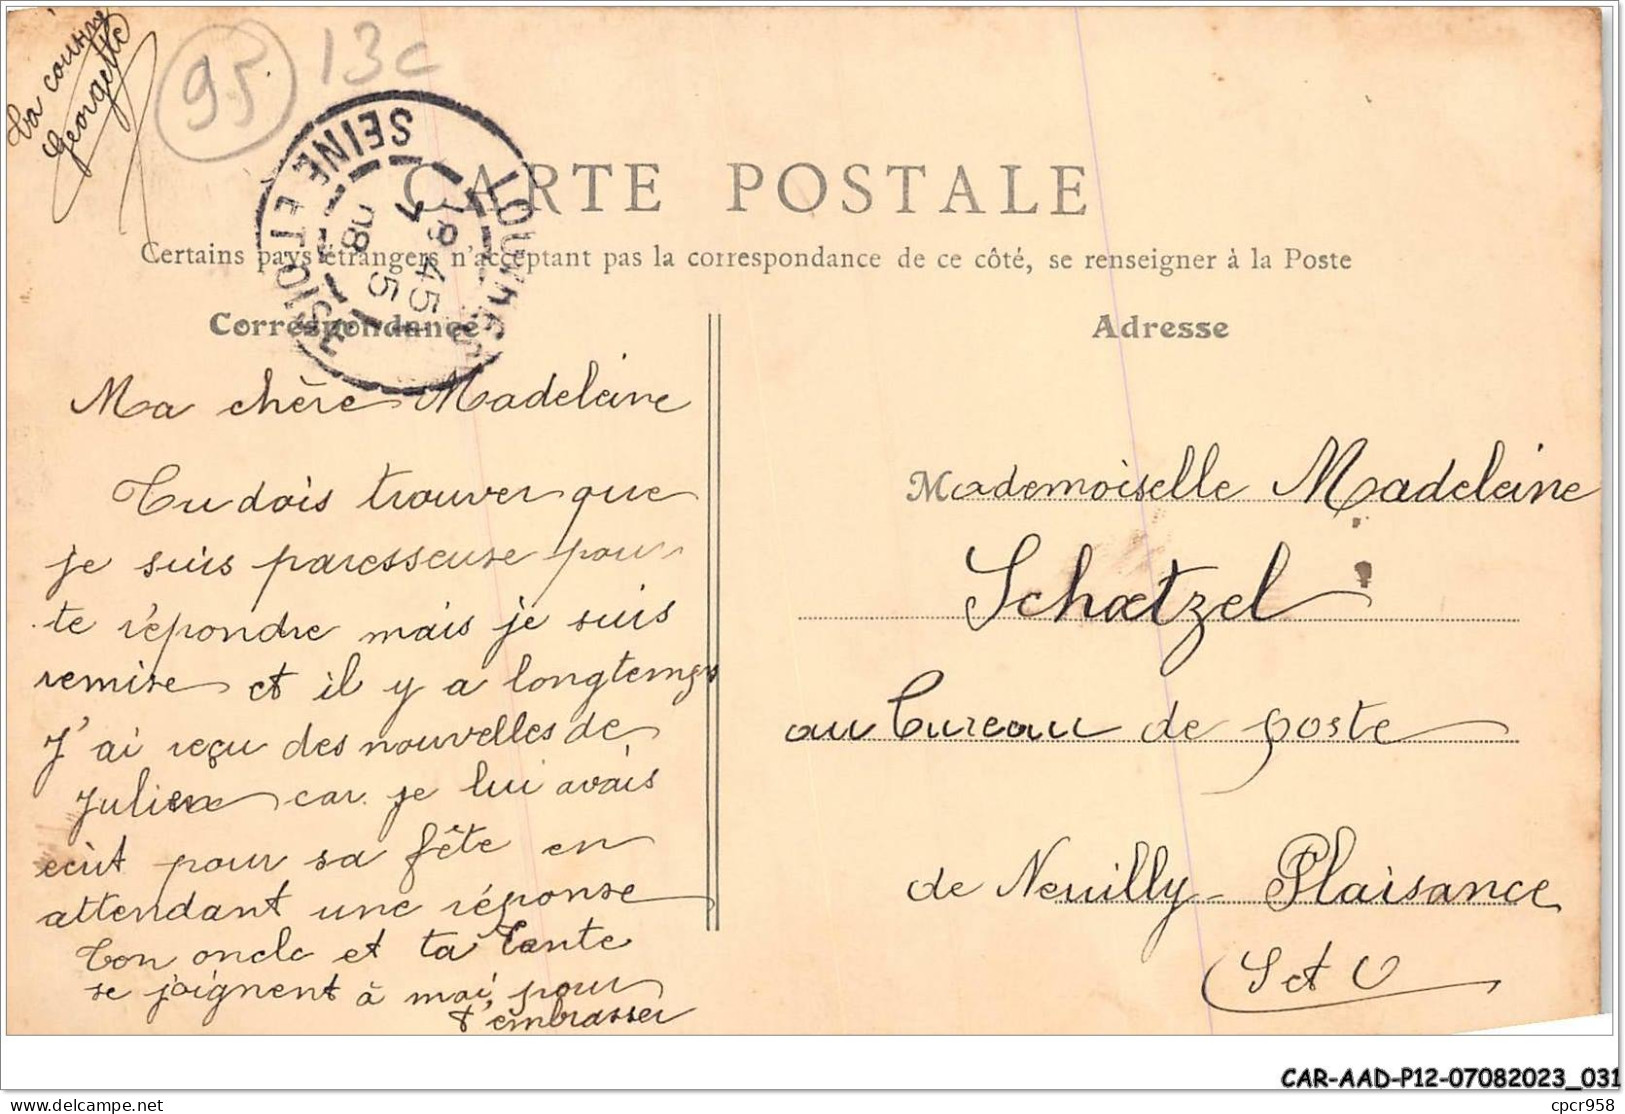 Ta cousine
Georgette
95
13c
CARTE POSTALE
Certains pays étrangers n'acceptant pas la correspondance de ce côté, se renseigner à la Poste
LOUVRES
SEINE ET OISE
18 45
7 5
08
Correspondance
Ma chère Madeleine
Tu dois trouver que
je suis paresseuse pour
te répondre mais je suis
remise et il y a longtemps
J'ai reçu des nouvelles de
Julien car je lui avais
écrit pour sa fête en
attendant une réponse
Ton oncle et ta Tante
se joignent à moi pour
t'embrasser
Adresse
Mademoiselle Madeleine
Schætzel
au bureau de poste
de Neuilly-Plaisance
S et O
CAR-AAD-P12-07082023_031
cpcr958